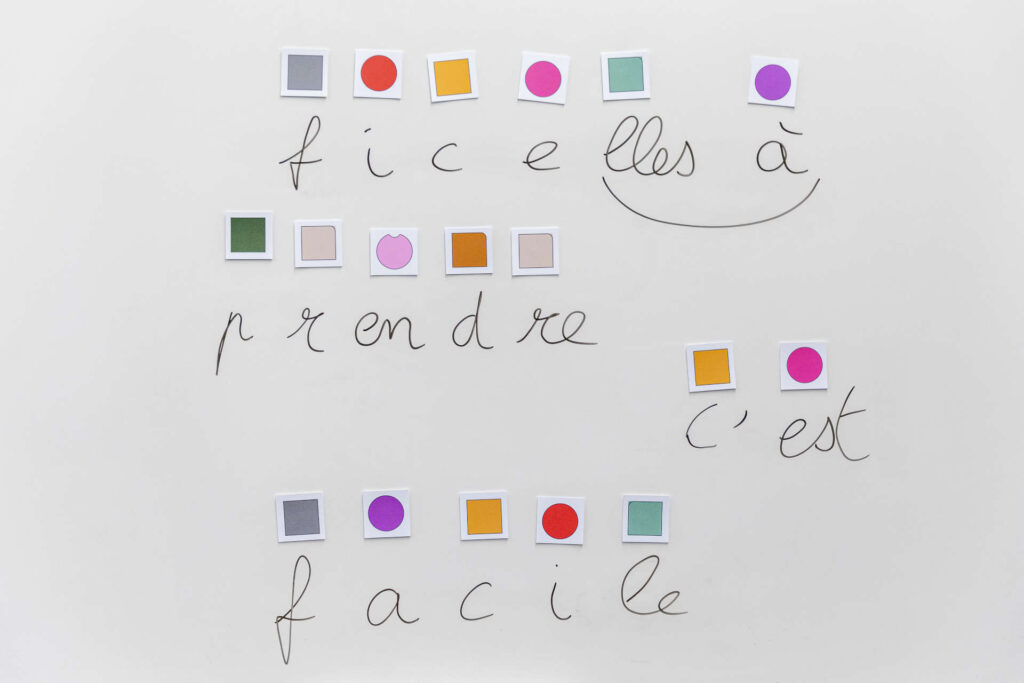 ficelles à
prendre
c'est
facile